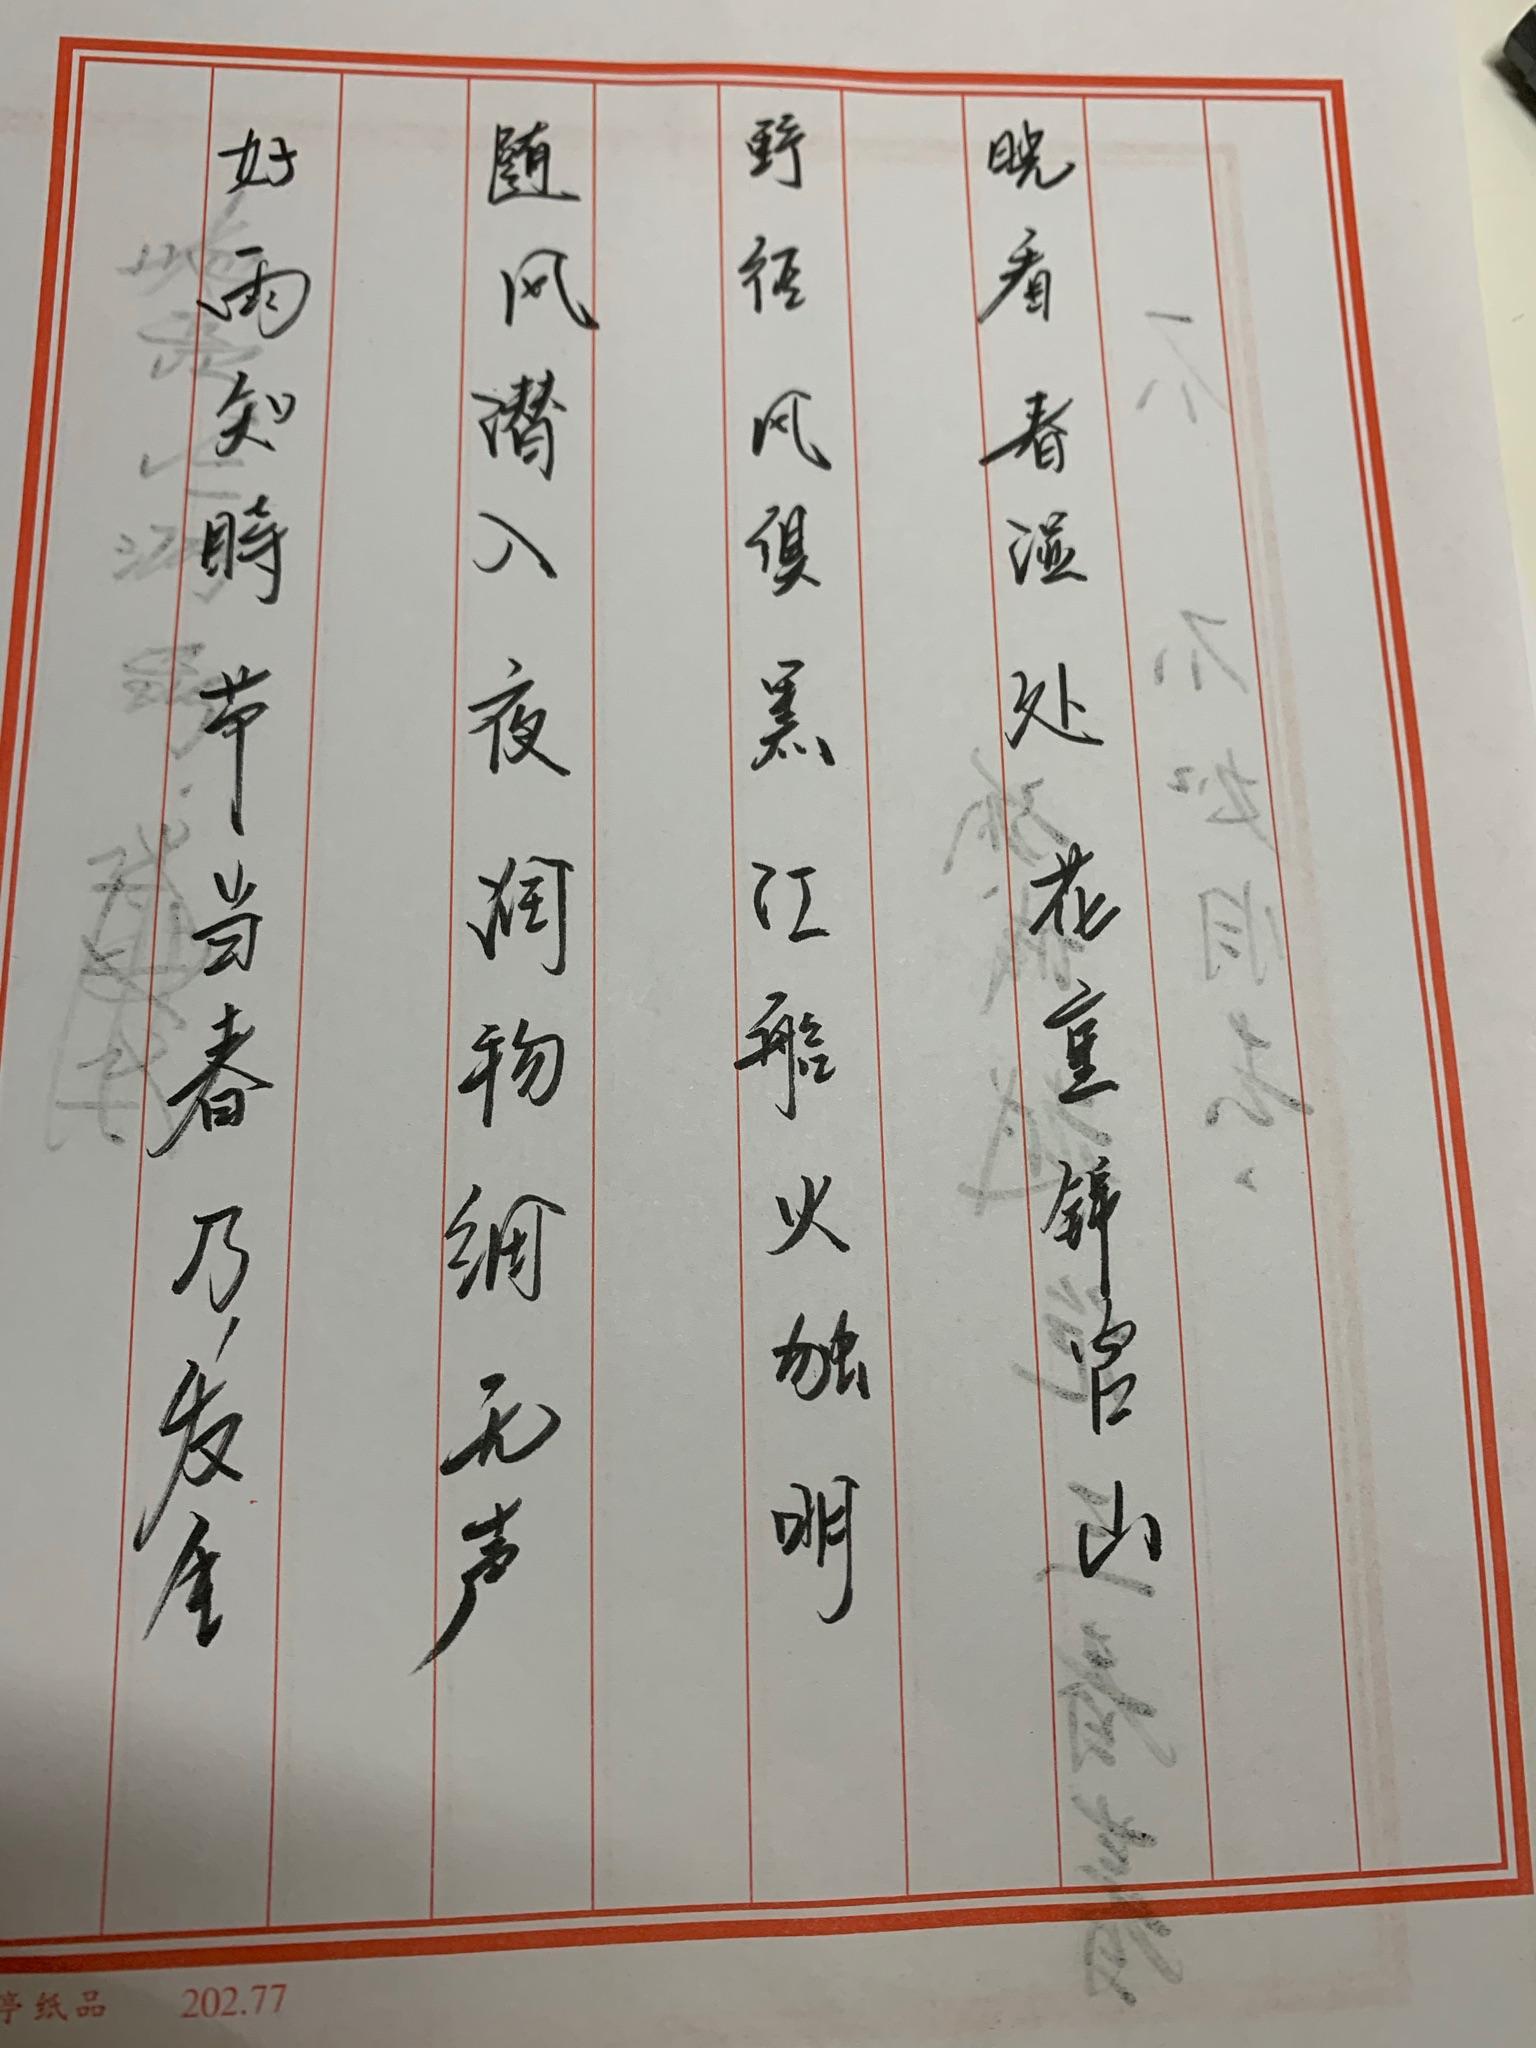 好雨知時节当春乃发生
随风潜入夜润物细无声
野径风俱黑江船火独明
晓看春湿处花重锦官山
亭纸品 202.77